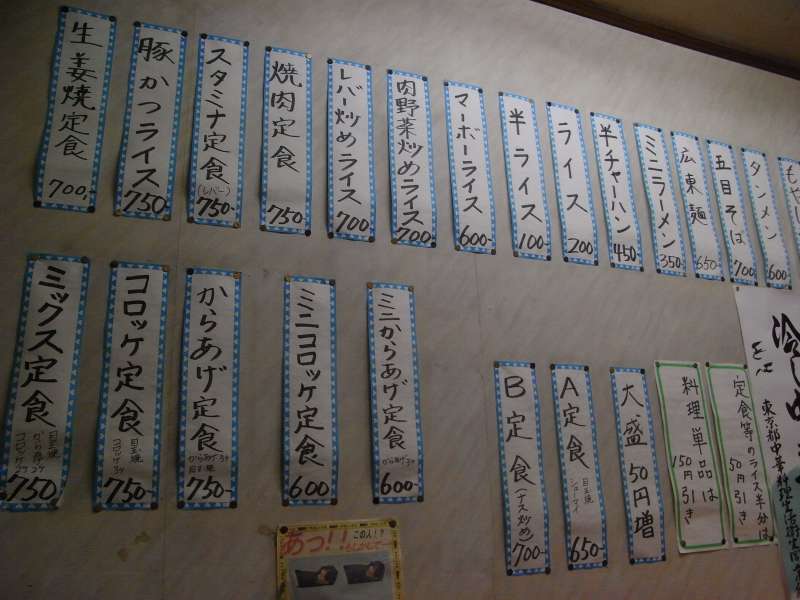 もやし
タンメン 600-
五目そば 700-
広東麺 650-
ミニラーメン 350-
半チャーハン 450-
ライス 200
半ライス 100-
マーボーライス 600-
肉野菜炒めライス 700-
レバー炒めライス 700
焼肉定食 750-
スタミナ定食 (レバー) 750-
豚かつライス 750
生姜焼定食 700,-
冷し中
東京都中華料理生活衛生同
定食等のライス半分は
50円引き
料理単品は
150円引き
大盛50円増
A定食 目玉焼 シューマイ 650-
B定食 (ナス炒め) 700-
ミニからあげ定食 からあげ3ケ 600
ミニコロッケ定食 600
からあげ定食 からあげ3ケ 目玉焼 750-
コロッケ定食 目玉焼 コロッケ3ケ 750-
ミックス定食 目玉焼 から揚2ケ コロッケ2ケ 750
あっ!! この人!?
もしかして